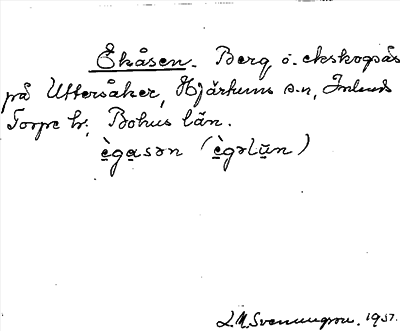 Ekåsen. Berg o. ekskogsås
på Uttersåker, Hjärtums s:n, Inlands
Torpe hr, Bohus län.
ègasən (ègəlūn)
S.M. Svenungsson. 1937.